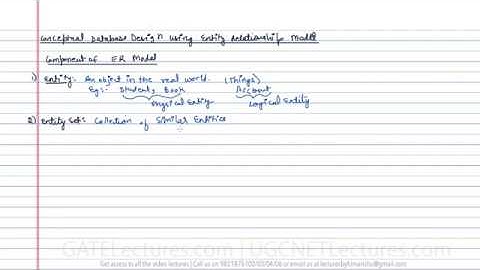 Conceptual Database Design Using Entity Relationship Model
Component of ER Model
1) Entity:- An object in the real world. (Things)
Eg:- Students, Book Account
Physical Entity Logical Entity
2) Entity Set: Collection of Similar Entities
GATELectures.com | UGCNETLectures.com
Get access to all the video lectures | Call us on